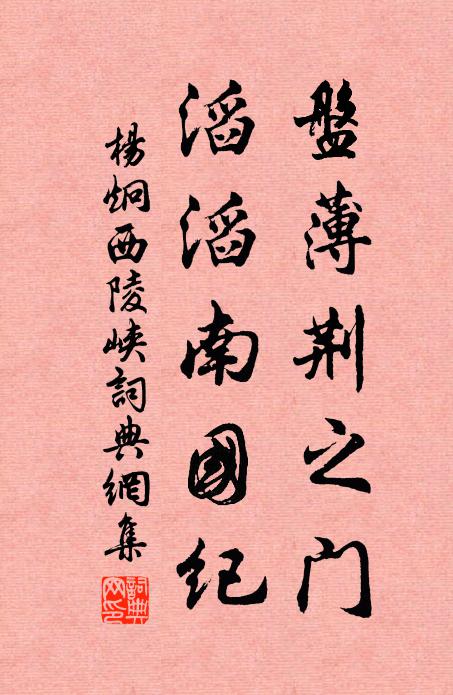 盤薄荆之门
滔滔南國紀
楊炯西陵峽詞典網集
詞典
网印